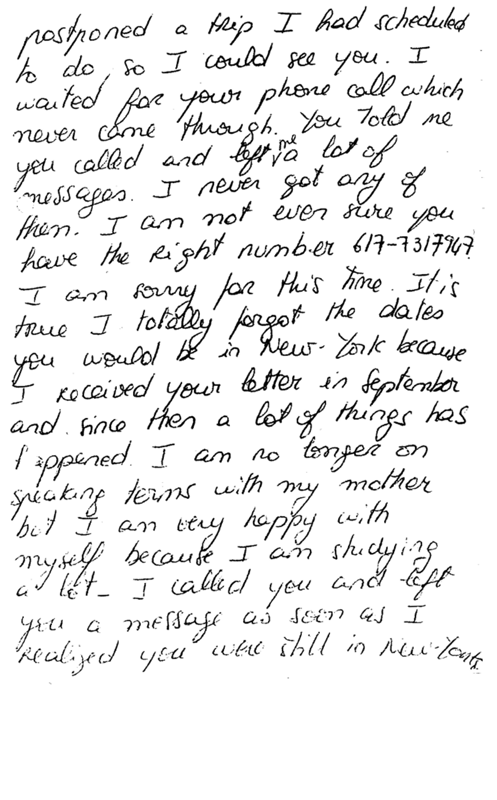 postponed a trip I had scheduled
to do, so I could see you. I
waited for your phone call which
never came through. You told me
you called and left me a lot of
messages. I never got any of
them. I am not even sure you
have the right number 617-7317947
I am sorry for this time. It is
true I totally forgot the dates
you would be in New-York because
I received your letter in September
and since then a lot of things has
happened. I am no longer on
speaking terms with my mother
but I am very happy with
myself because I am studying
a lot_ I called you and left
you a message as soon as I
realized you were still in New-York.